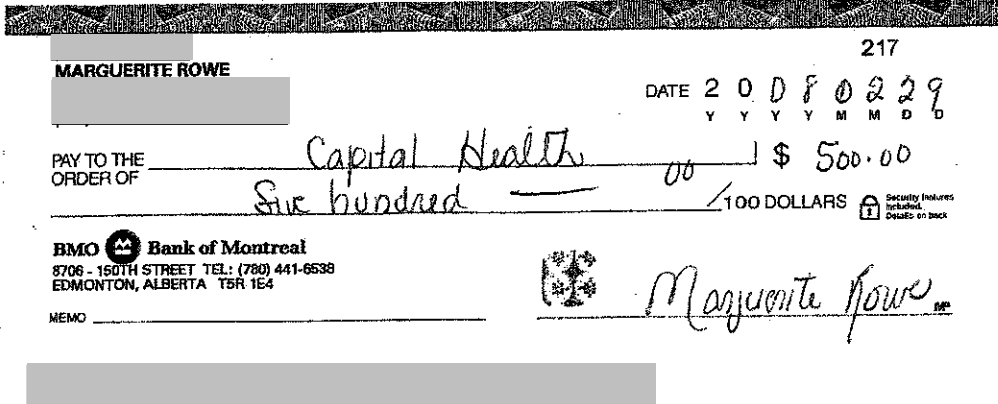 217
MARGUERITE ROWE
DATE 2 0 0 8 0 2 2 9
Y Y Y Y M M D D
PAY TO THE ORDER OF Capital Health $ 500.00
Five hundred 00/100 DOLLARS
Security features included. Details on back
BMO Bank of Montreal
8706 - 150TH STREET TEL: (780) 441-6538
EDMONTON, ALBERTA T5R 1E4
MEMO
Marguerite Rowe MP